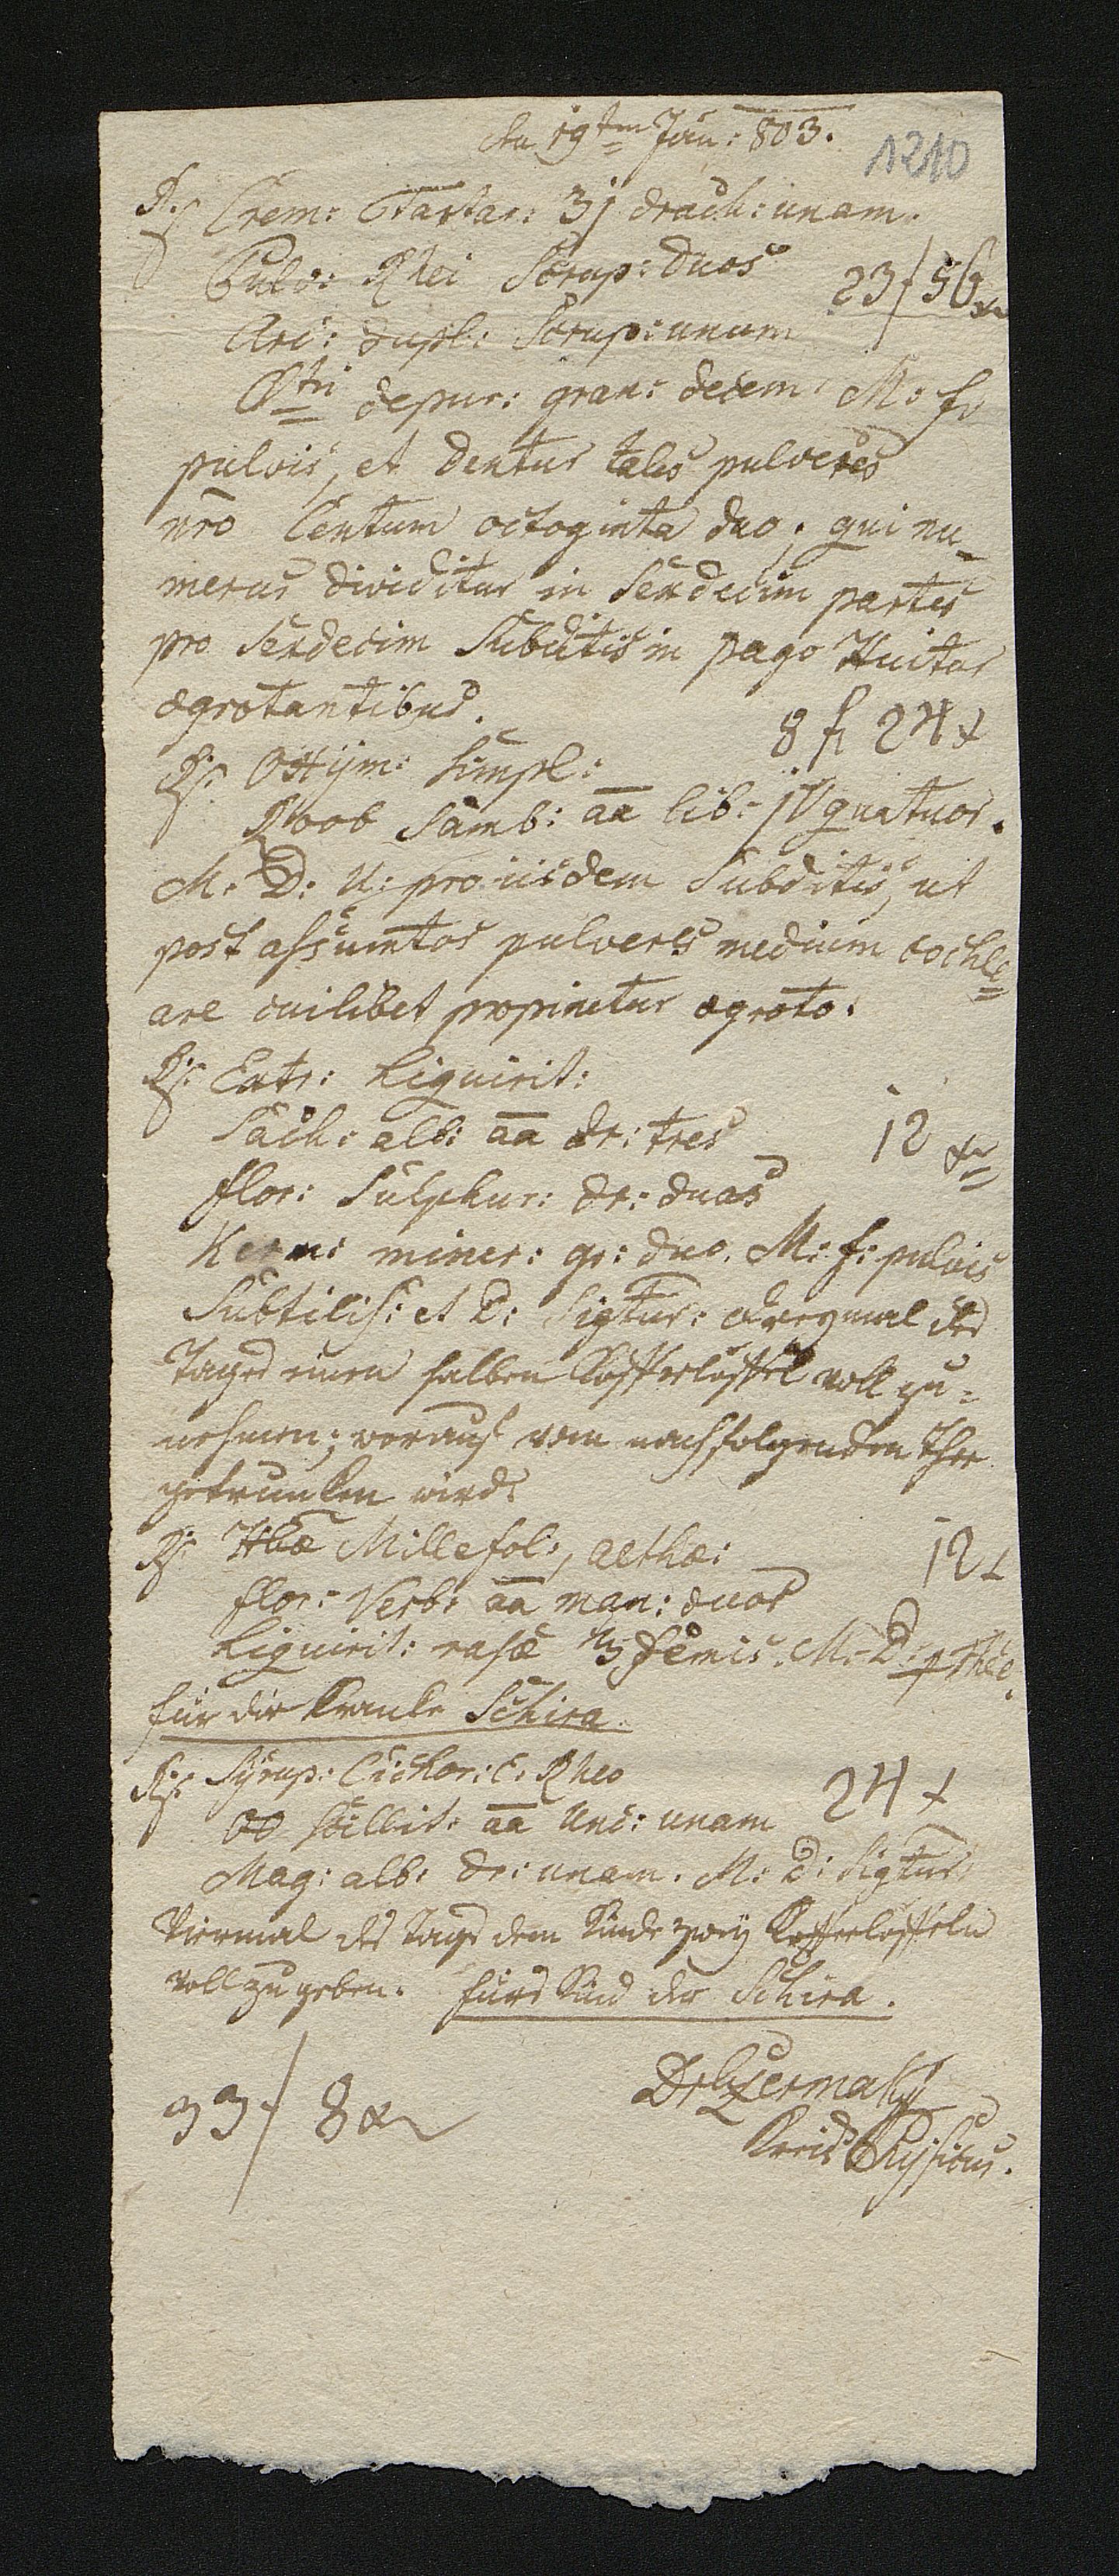 den 19ten Jän: 803.
1210
Rp Crem: Tartar: ʒj drach: unam.
Pulv: Rhei Scrup: duos
23 f 56 xr
Arc: dupl: Scrup: unum
depur: gran: decem. M: f:
pulvis, et dentur tales pulveres
nro Centum octoginta duo; qui nu-
merus dividitur in Sexdecim partes
pro Sexdecim Subditis in pago
ægrotantibus.
8 fl 24 x
Rp. Oxÿm: simpl:
Roob Samb: aa lib: jV quatuor.
M. D: U: pro iisdem Subditis, ut
post assumtos pulveres medium cochle=
are cuilibet propinetur ægroto.
Rp. Extr: Liquirit:
Sach: alb: aa dr: tres
12 xr
flor: Sulphur: dr: duas
Kerm: miner: gr: duo. M: f: pulvis
Subtilis: et D: Sigtur: dreymal des
Tages einen halben Kaffeelöffel voll zu=
nehmen; worauf vom nachfolgenden Thee
getrunken wird.
Rp. Hbæ Millefol:, althæ:
12 x
flor: Verb: aa man: duos
Liquirit: rasæ ℥ semis. M. D. p Thee.
für die Kranke Schira
Rp. Syrup: Cichor: c: Rheo
24 x
scillit: aa Unc: unam
Mag: alb: dr: unam. M: D: Sigtur
Viermal des Tags dem Kinde zweÿ Kaffeelöffeln
voll zu geben. fürs Kind der Schira.
33 f 8 xr
Dr Czermak
Kreis Phÿsicus.